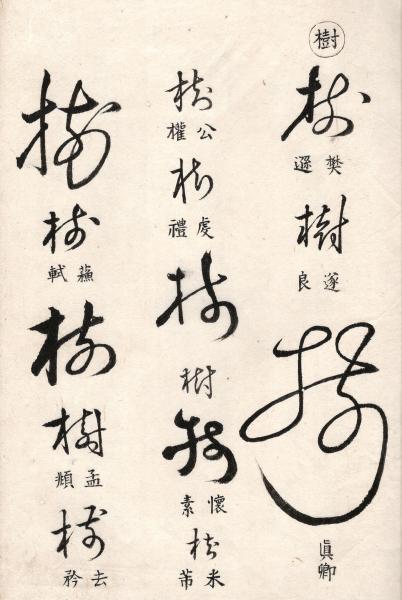 樹
樹
樊遜
樹
遂良
樹
眞卿
樹
公權
樹
虔禮
樹
樹
樹
懷素
樹
米芾
樹
樹
蘓軾
樹
樹
孟頫
樹
去矜